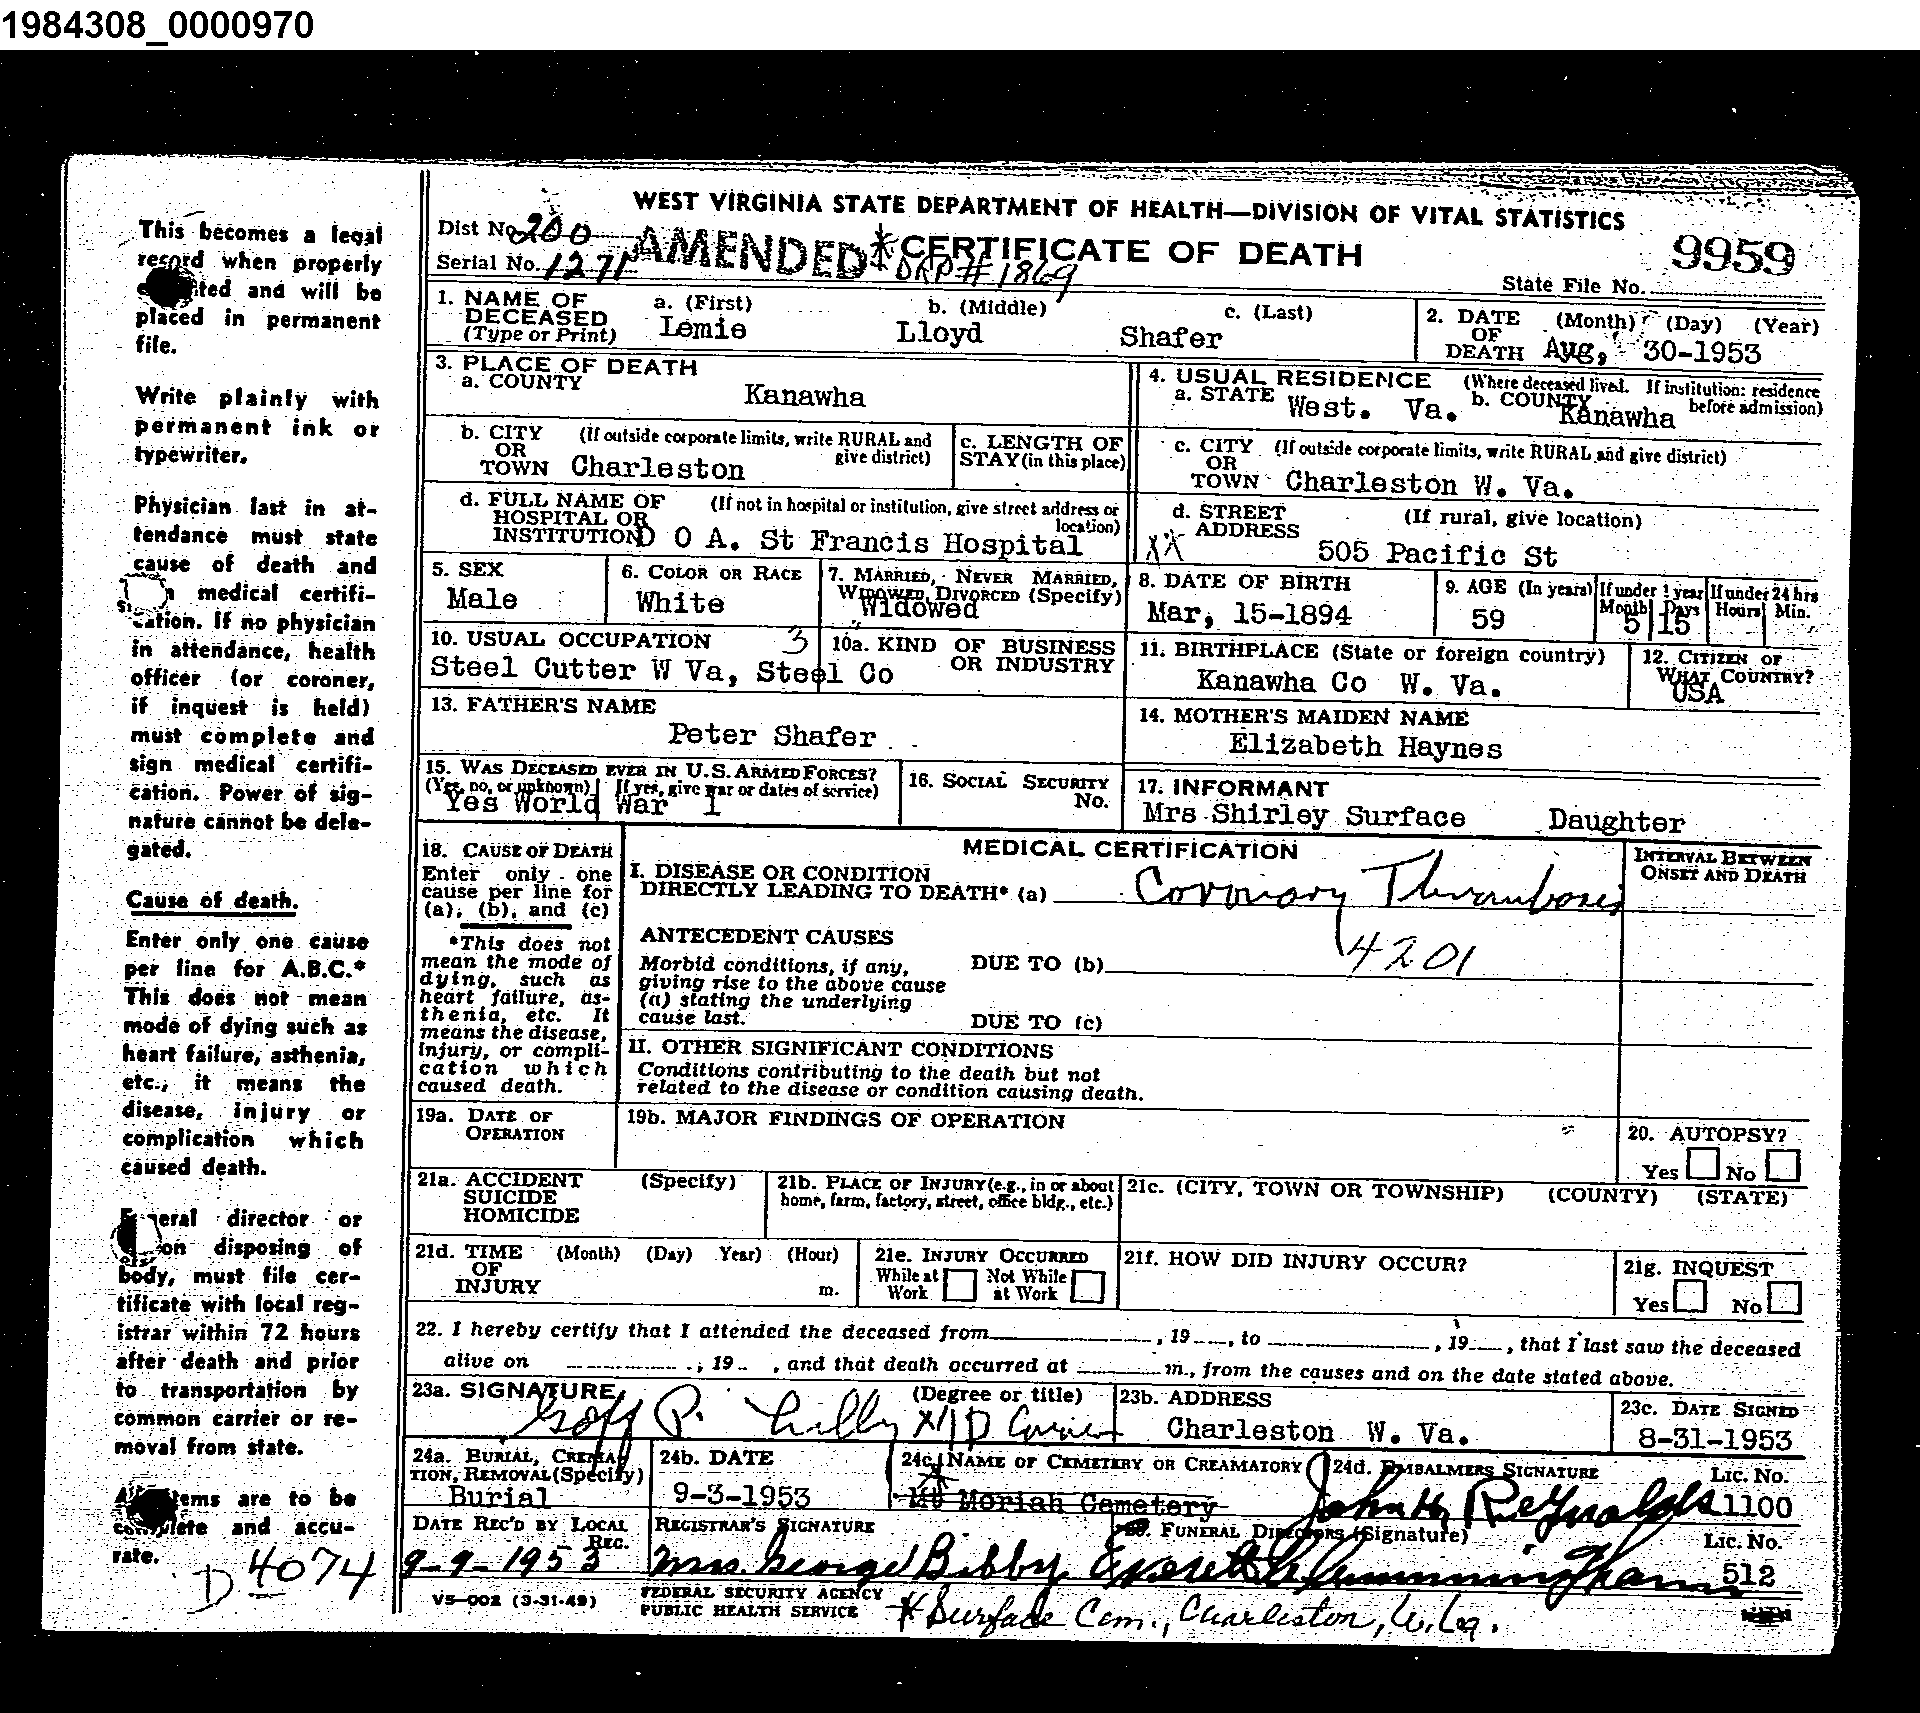 1984308_0000970
WEST VIRGINIA STATE DEPARTMENT OF HEALTH—DIVISION OF VITAL STATISTICS
Dist No. 200
AMENDED * CERTIFICATE OF DEATH
9959
Serial No. 1271
DRP # 1869
State File No.
1. NAME OF DECEASED (Type or Print) a. (First) b. (Middle) c. (Last)
Lemie Lloyd Shafer
2. DATE OF DEATH (Month) (Day) (Year)
Aug, 30-1953
3. PLACE OF DEATH
a. COUNTY Kanawha
4. USUAL RESIDENCE (Where deceased lived. If institution: residence before admission)
a. STATE West. Va. b. COUNTY Kanawha
b. CITY OR TOWN (If outside corporate limits, write RURAL and give district)
Charleston
c. LENGTH OF STAY (in this place)
c. CITY OR TOWN (If outside corporate limits, write RURAL and give district)
Charleston W. Va.
d. FULL NAME OF HOSPITAL OR INSTITUTION (If not in hospital or institution, give street address or location)
D O A. St Francis Hospital
d. STREET ADDRESS (If rural, give location)
XX 505 Pacific St
5. SEX
Male
6. COLOR OR RACE
White
7. MARRIED, NEVER MARRIED, WIDOWED, DIVORCED (Specify)
Widowed
8. DATE OF BIRTH
Mar, 15-1894
9. AGE (In years)
59
If under 1 year Month Days
5 15
If under 24 hrs Hours Min.
10. USUAL OCCUPATION 3
Steel Cutter W Va, Steel Co
10a. KIND OF BUSINESS OR INDUSTRY
11. BIRTHPLACE (State or foreign country)
Kanawha Co W. Va.
12. CITIZEN OF WHAT COUNTRY?
USA
13. FATHER'S NAME
Peter Shafer
14. MOTHER'S MAIDEN NAME
Elizabeth Haynes
15. WAS DECEASED EVER IN U.S. ARMED FORCES?
(Yes, no, or unknown) If yes, give war or dates of service)
Yes World War 1
16. SOCIAL SECURITY No.
17. INFORMANT
Mrs Shirley Surface Daughter
18. CAUSE OF DEATH
Enter only one cause per line for (a), (b), and (c)
*This does not mean the mode of dying, such as heart failure, asthenia, etc. It means the disease, injury, or complication which caused death.
MEDICAL CERTIFICATION
INTERVAL BETWEEN ONSET AND DEATH
I. DISEASE OR CONDITION DIRECTLY LEADING TO DEATH* (a) Coronary Thrombosis
ANTECEDENT CAUSES
Morbid conditions, if any, giving rise to the above cause (a) stating the underlying cause last.
DUE TO (b) 4201
DUE TO (c)
II. OTHER SIGNIFICANT CONDITIONS
Conditions contributing to the death but not related to the disease or condition causing death.
19a. DATE OF OPERATION
19b. MAJOR FINDINGS OF OPERATION
20. AUTOPSY?
Yes No
21a. ACCIDENT SUICIDE HOMICIDE (Specify)
21b. PLACE OF INJURY (e.g., in or about home, farm, factory, street, office bldg., etc.)
21c. (CITY, TOWN OR TOWNSHIP) (COUNTY) (STATE)
21d. TIME OF INJURY (Month) (Day) Year) (Hour) m.
21e. INJURY OCCURRED
While at Work Not While at Work
21f. HOW DID INJURY OCCUR?
21g. INQUEST
Yes No
22. I hereby certify that I attended the deceased from , 19 , to , 19 , that I last saw the deceased
alive on , 19 , and that death occurred at m., from the causes and on the date stated above.
23a. SIGNATURE (Degree or title)
Goff P. Lilly M D Coroner
23b. ADDRESS
Charleston W. Va.
23c. DATE SIGNED
8-31-1953
24a. BURIAL, CREMATION, REMOVAL (Specify)
Burial
24b. DATE
9-3-1953
24c. NAME OF CEMETERY OR CREAMATORY
* Mt Moriah Cemetery
24d. EMBALMERS SIGNATURE Lic. No.
John H. Reynolds 1100
DATE REC'D BY LOCAL REG.
9-9-1953
REGISTRAR'S SIGNATURE
Mrs. George Bibby
25. FUNERAL DIRECTORS (Signature) Lic. No.
Cunningham 512
VS-002 (3-31-49)
FEDERAL SECURITY AGENCY
PUBLIC HEALTH SERVICE
* Surface Cem., Charleston, W. Va.
This becomes a legal
record when properly
and will be
placed in permanent
file.
Write plainly with
permanent ink or
typewriter.
Physician last in at-
tendance must state
cause of death and
medical certifi-
cation. If no physician
in attendance, health
officer (or coroner,
if inquest is held)
must complete and
sign medical certifi-
cation. Power of sig-
nature cannot be dele-
gated.
Cause of death.
Enter only one cause
per line for A.B.C.*
This does not mean
mode of dying such as
heart failure, asthenia,
etc., it means the
disease, injury or
complication which
caused death.
Funeral director or
disposing of
body, must file cer-
tificate with local reg-
istrar within 72 hours
after death and prior
to transportation by
common carrier or re-
moval from state.
All items are to be
complete and accu-
rate.
D 4074